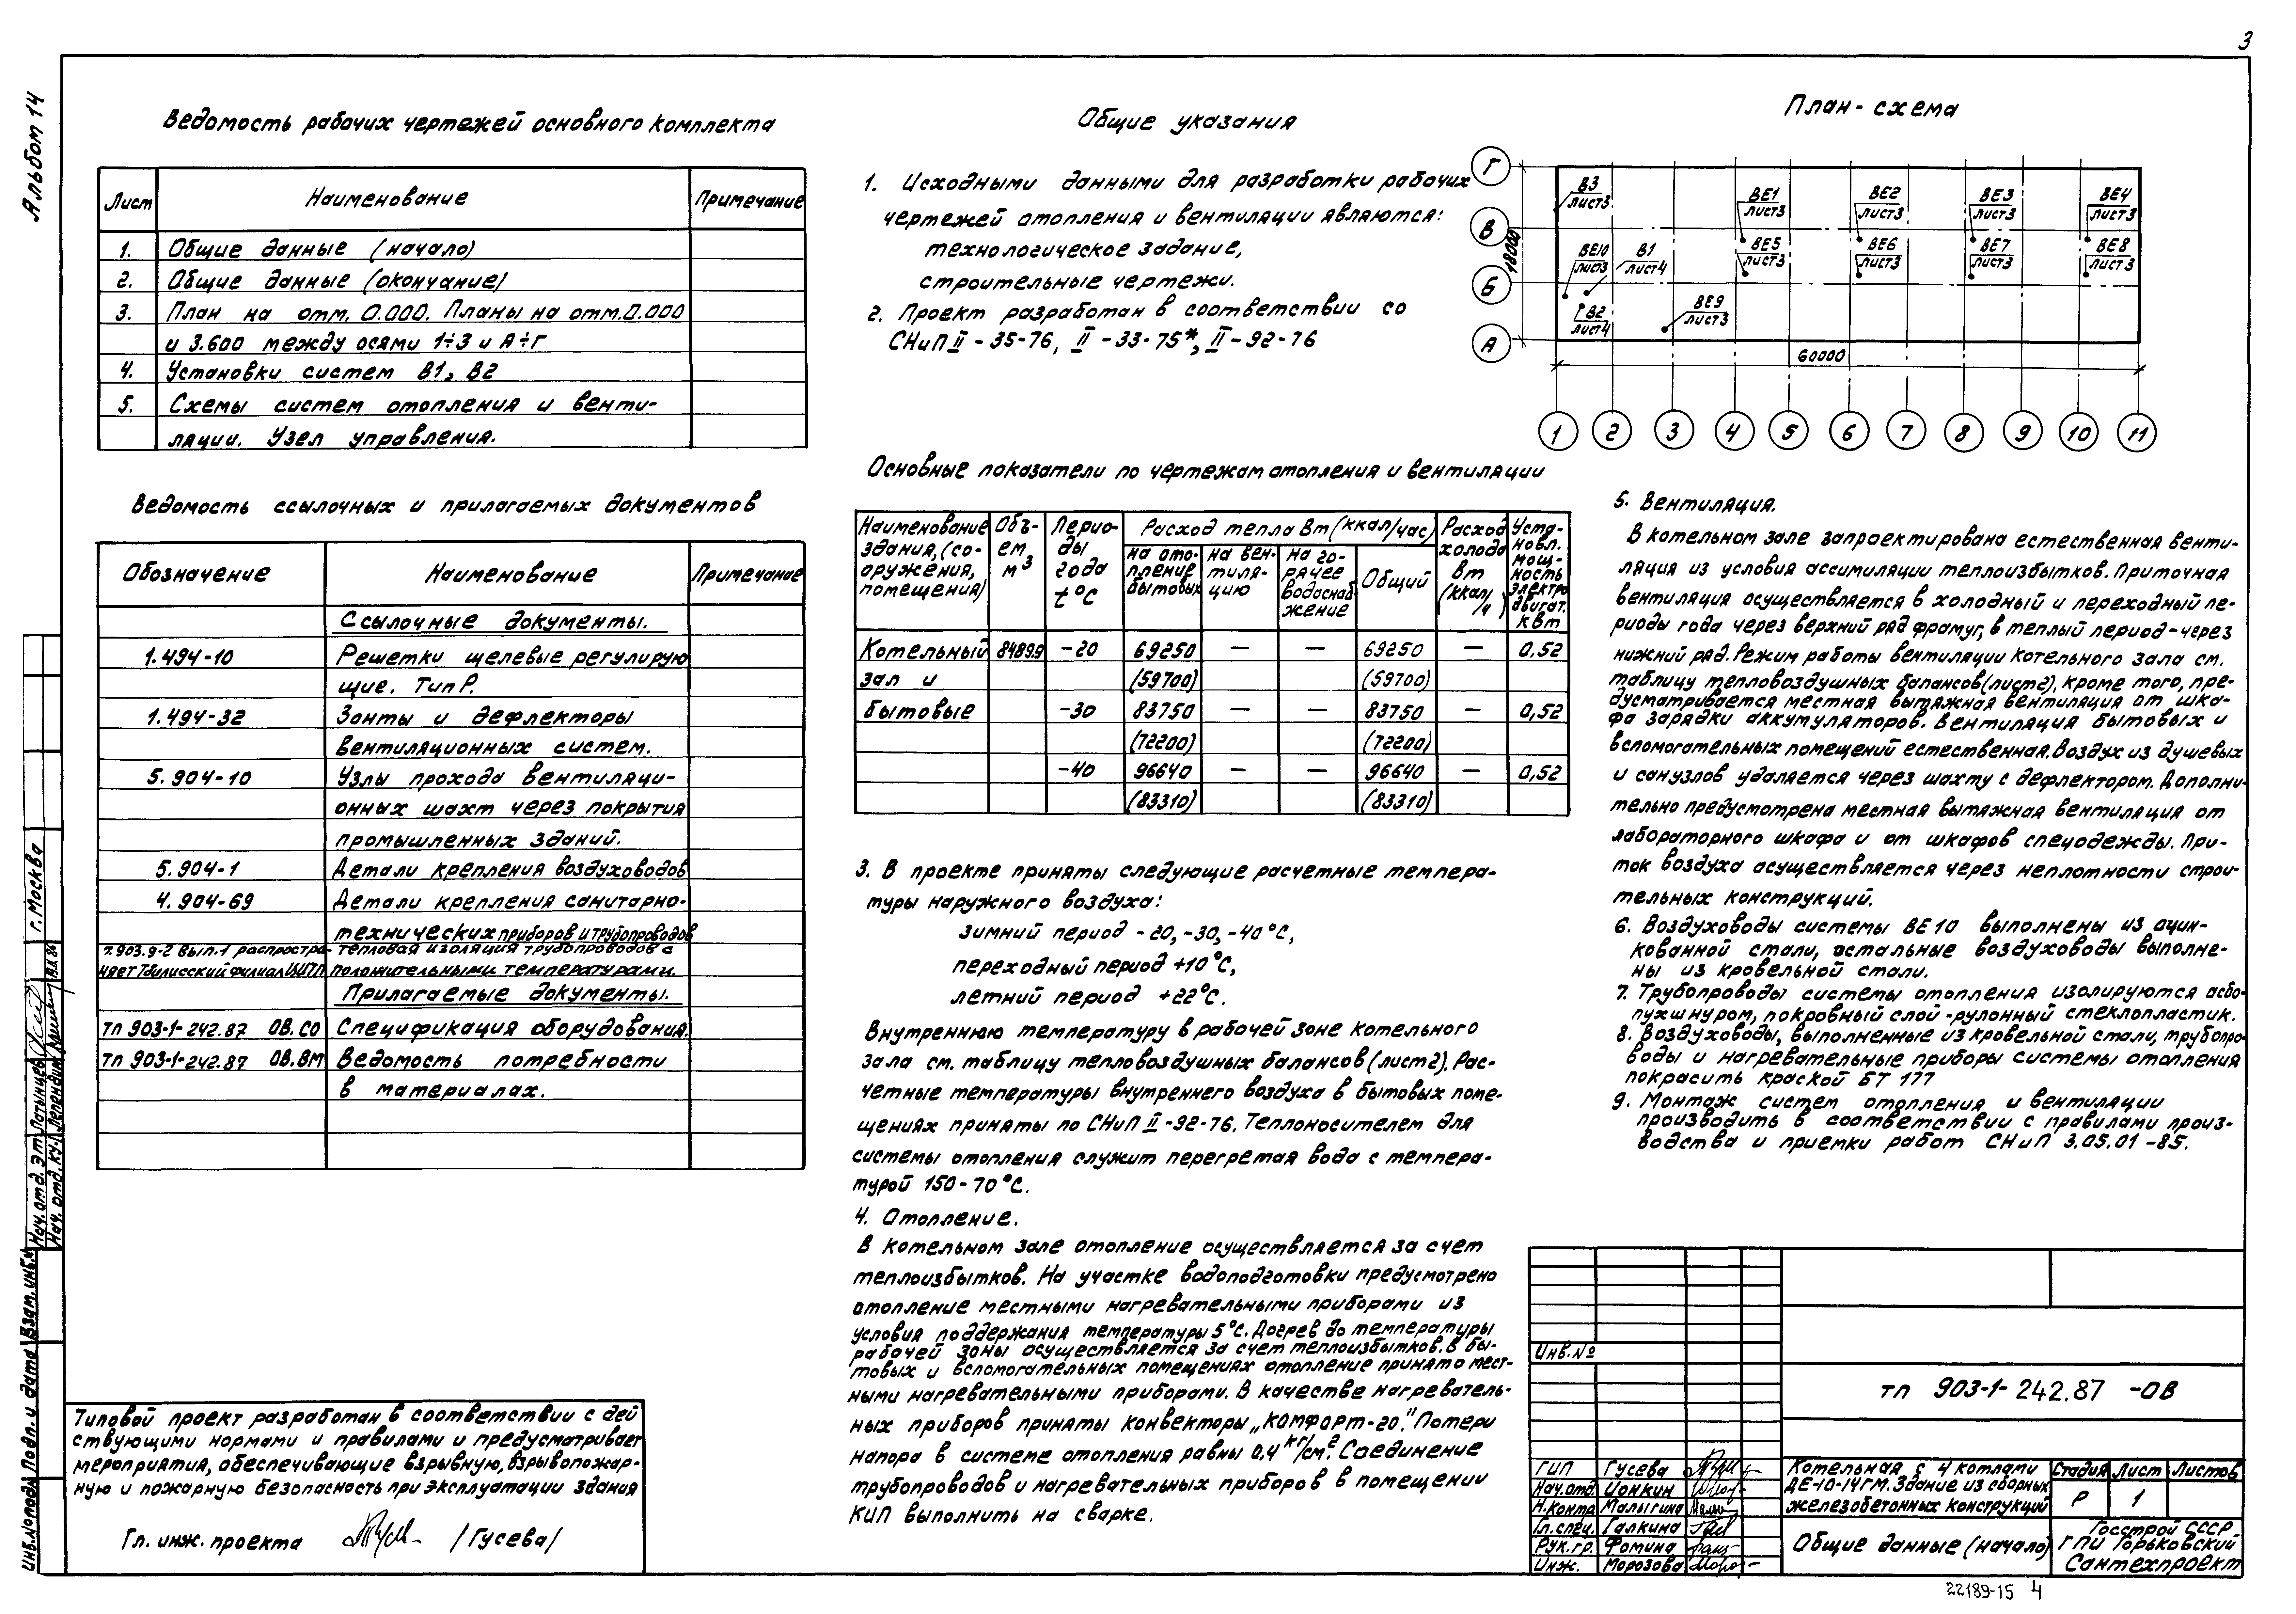 3
Альбом 14
Ведомость рабочих чертежей основного комплекта
Лист Наименование Примечание
1. Общие данные (начало)
2. Общие данные (окончание)
3. План на отм. 0.000. Планы на отм. 0.000
и 3.600 между осями 1÷3 и А÷Г
4. Установки систем В1, В2
5. Схемы систем отопления и венти-
ляции. Узел управления.
Ведомость ссылочных и прилагаемых документов
Обозначение Наименование Примечание
Ссылочные документы.
1.494-10 Решетки щелевые регулирую
щие. Тип Р.
1.494-32 Зонты и дефлекторы
вентиляционных систем.
5.904-10 Узлы прохода вентиляци-
онных шахт через покрытия
промышленных зданий.
5.904-1 Детали крепления воздуховодов
4.904-69 Детали крепления санитарно-
технических приборов и трубопроводов
т.903.9-2 вып.1 распростра- Тепловая изоляция трубопроводов с
няет Тбилисский филиал ЦИТП положительными температурами.
Прилагаемые документы.
тп 903-1-242.87 ОВ.СО Спецификация оборудования.
тп 903-1-242.87 ОВ.ВМ Ведомость потребности
в материалах.
Типовой проект разработан в соответствии с дей
ствующими нормами и правилами и предусматривает
мероприятия, обеспечивающие взрывную, взрывопожар-
ную и пожарную безопасность при эксплуатации здания
Гл. инж. проекта /Гусева/
Общие указания
1. Исходными данными для разработки рабочих
чертежей отопления и вентиляции являются:
технологическое задание,
строительные чертежи.
2. Проект разработан в соответствии со
СНиП II-35-76, II-33-75*, II-92-76
Основные показатели по чертежам отопления и вентиляции
Наименование здания, (сооружения, помещения) Объем, м3 Периоды года t°C Расход тепла Вт (ккал/час) Расход холода Вт (ккал/ч) Устано​вл. мощность электро двигат. кВт
на отопление бытовых на вентиляцию на горячее водоснабжение Общий
Котельный 8489.9 -20 69250 — — 69250 — 0,52
зал и (59700) (59700)
бытовые -30 83750 — — 83750 — 0,52
(72200) (72200)
-40 96640 — — 96640 — 0,52
(83310) (83310)
3. В проекте приняты следующие расчетные темпера-
туры наружного воздуха:
зимний период -20, -30, -40°С,
переходный период +10°С,
летний период +22°С.
Внутреннюю температуру в рабочей зоне котельного
зала см. таблицу тепловоздушных балансов (лист 2). Рас-
четные температуры внутреннего воздуха в бытовых поме-
щениях приняты по СНиП II-92-76. Теплоносителем для
системы отопления служит перегретая вода с темпера-
турой 150-70°С.
4. Отопление.
В котельном зале отопление осуществляется за счет
теплоизбытков. На участке водоподготовки предусмотрено
отопление местными нагревательными приборами из
условия поддержания температуры 5°С. Догрев до температуры
рабочей зоны осуществляется за счет теплоизбытков. В бы-
товых и вспомогательных помещениях отопление принято мест-
ными нагревательными приборами. В качестве нагреватель-
ных приборов приняты конвекторы „Комфорт-20." Потери
напора в системе отопления равны 0,4 кг/см². Соединение
трубопроводов и нагревательных приборов в помещении
КИП выполнить на сварке.
План-схема
Г
В
Б
А
18000
В3 лист3
ВЕ1 лист3
ВЕ2 лист3
ВЕ3 лист3
ВЕ4 лист3
ВЕ10 лист3
В1 лист4
ВЕ5 лист3
ВЕ6 лист3
ВЕ7 лист3
ВЕ8 лист3
В2 лист4
ВЕ9 лист3
60000
1 2 3 4 5 6 7 8 9 10 11
5. Вентиляция.
В котельном зале запроектирована естественная венти-
ляция из условия ассимиляции теплоизбытков. Приточная
вентиляция осуществляется в холодный и переходный пе-
риоды года через верхний ряд фрамуг, в теплый период-через
нижний ряд. Режим работы вентиляции котельного зала см.
таблицу тепловоздушных балансов (лист2), кроме того, пре-
дусматривается местная вытяжная вентиляция от шка-
фа зарядки аккумуляторов. Вентиляция бытовых и
вспомогательных помещений естественная. Воздух из душевых
и санузлов удаляется через шахту с дефлектором. Дополни-
тельно предусмотрена местная вытяжная вентиляция от
лабораторного шкафа и от шкафов спецодежды. При-
ток воздуха осуществляется через неплотности строи-
тельных конструкций.
6. Воздуховоды системы ВЕ10 выполнены из оцин-
кованной стали, остальные воздуховоды выполне-
ны из кровельной стали.
7. Трубопроводы системы отопления изолируются асбо-
пухшнуром, покровный слой-рулонный стеклопластик.
8. Воздуховоды, выполненные из кровельной стали, трубопро-
воды и нагревательные приборы системы отопления
покрасить краской БТ 177
9. Монтаж систем отопления и вентиляции
производить в соответствии с правилами произ-
водства и приемки работ СНиП 3.05.01-85.
Инв.№
тп 903-1-242.87 -ОВ
ГИП Гусева
Нач.отд. Ионкин
Н.контр. Малыгина
Гл.спец. Галкина
Рук.гр. Фомина
Инж. Морозова
Котельная с 4 котлами
ДЕ-10-14ГМ. Здание из сборных
железобетонных конструкций
Стадия Лист Листов
Р 1
Общие данные (начало)
Госстрой СССР
ГПИ Горьковский
Сантехпроект
22189-15 4
г. Москва
Нач. отд. ЭТ Латынцев
Нач. отд. КУ
Инв.№подл. Подп. и дата Взам.инв.№